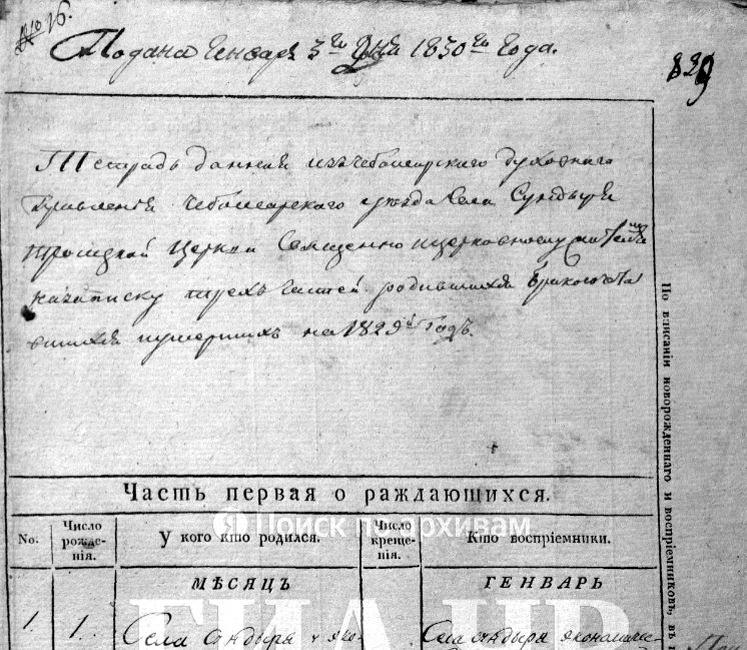 № 16.
Подана Генваря 3го Дня 1830го Года.
829
Тетрадь данная изъ Чебоксарского Духовнаго
Правления Чебоксарского уезда Села Сундыря
Троицкой Церкви Священно и церковнослужителямъ
на записку трехъ Частей родившихся бракосочета
вшихся и умершихъ на 1829й Годъ.
Часть первая о раждающихся.
No.
Число рожде-нія.
У кого кто родился.
Число креще-нія.
Кто воспріемники.
МѢСЯЦЪ
ГЕНВАРЬ
1.
1.
Села Сундыря
Села Сундыря экономиче-
По вписаніи новорожденнаго и воспріемниковъ, въ
Я Поиск по архивам
ГИА ЧР